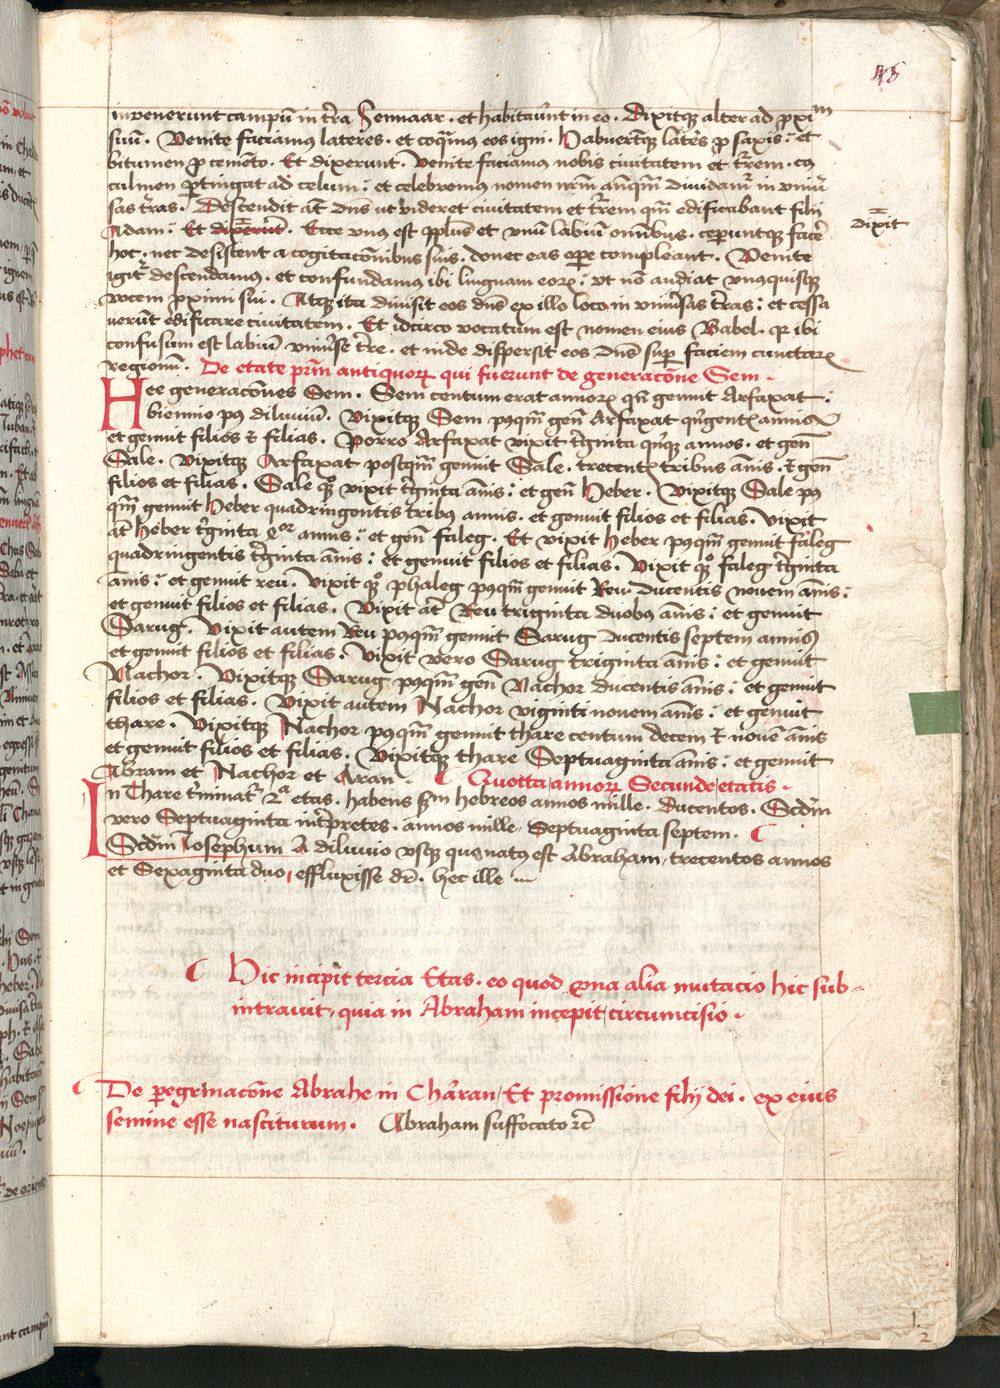 45
invenerunt campū in t̄ra Sennaar . et habitaūnt in eo . Dixitqȝ alter ad ꝓxim
suū . Venite faciamus lateres . et coqamus eos igni . Habuer̄tqȝ lat̄es ꝓ saxis : et
bitumen ꝓ cemēto . Et dixerunt . Venite faciamus nobis civitatem et t̄rem . cꝰ
culmen ꝑtingat ad celum : et celebremus nomen nr̄m an̄qm̄ dividam̄ in univ̄
sas t̄ras . Descendit at̄ dn̄s ut videret civitatem et t̄rem qm̄ edificabant filij
Adam : Et dixerūt . Ecce unus est ppl̄us et unū labiū om̄ibus . ceperuntqȝ facē
dixit
hoc . nec desistent a cogitac̄onibus suis . donec eas oper̄ compleant . Venite
igit̄ descendamus . et confundamus ibi linguam eorꝝ : ut nō audiat unusquisqȝ
vocem ꝓximi sui . Atqȝ ita divisit eos dn̄s ex illo loco in univ̄sas t̄ras : et cessa
verūt edificare civitatem . Et idcirco vocatum est nomen eius Babel . qꝛ ibi
confusum est labiū univ̄se t̄re . et inde dispersit eos dn̄s suꝑ faciem cunctarꝝ
regionū . De etate pr̄m antiquorꝝ qui fuerunt de generac̄one Sem .
Hee generac̄ones Sem . Sem centum erat annorꝝ qn̄ genuit Arfaxat :
biennio pꝰ diluviū . Vixitqȝ Sem pꝰqm̄ gen̄ Arfaxat qn̄gentꝭ annis
et genuit filios et filias . Porro Arfaxat vixit t̄ginta qn̄qȝ annos . et gen̄
Sale . Vixitqȝ Arfaxat postqm̄ genuit Sale . trecentꝭ tribus an̄is . et gen̄
filios et filias . Sale qꝫ vixit t̄ginta an̄is : et gen̄ Heber . Vixitqȝ Sale pꝰ
qm̄ genuit Heber quadringentis tribus annis . et genuit filios et filias . Vixit
at̄ Heber t̄ginta qor annis : et gen̄ Faleg . Et vixit Heber pꝰqm̄ genuit Faleg
quadringentis t̄ginta an̄is : et genuit filios et filias . Vixit qꝫ Faleg t̄ginta
an̄is : et genuit reu . Vixit qꝫ Phaleg pꝰqm̄ genuit Reu ducentis novem an̄is :
et genuit filios et filias . Vixit at̄ Reu triginta duobus an̄is : et genuit
Sarug . Vixit autem Reu pꝰqm̄ genuit Sarug ducentis septem annis
et genuit filios et filias . Vixit vero Sarug triginta an̄is : et genuit
Nachor . Vixitqȝ Sarug pꝰqm̄ gen̄ Nachor ducentis an̄is : et genuit
filios et filias . Vixit autem Nachor viginti novem an̄is : et genuit
thare . Vixitqȝ Nachor pꝰqm̄ genuit thare centum decem et novē an̄is
et genuit filios et filias . Vixitqȝ thare Septuaginta an̄is : et genuit
Abram et Nachor et Aran . Quotta annorꝝ Secunde etatis .
In Thare t̄minat̄ 2a etas . habens sm̄ hebreos annos mille . Ducentos . Scd̄m
vero Septuaginta int̄pretes . annos mille, Septuaginta septem .
Scd̄m Iosephum A diluvio usqȝ quo natus est Abraham, trecentos annos
et Sexaginta duo, effluxisse dr̄ . hec ille
Hic incipit tercia Etas . eo quod una alia mutacio hic sub-
intravit, quia in Abraham incepit circumcisio .
De peregrinac̄one Abrahe in Charan, Et promissione filij dei . ex eius
semine esse nasciturum . Abraham suffocato ⁊c̄
1.
2